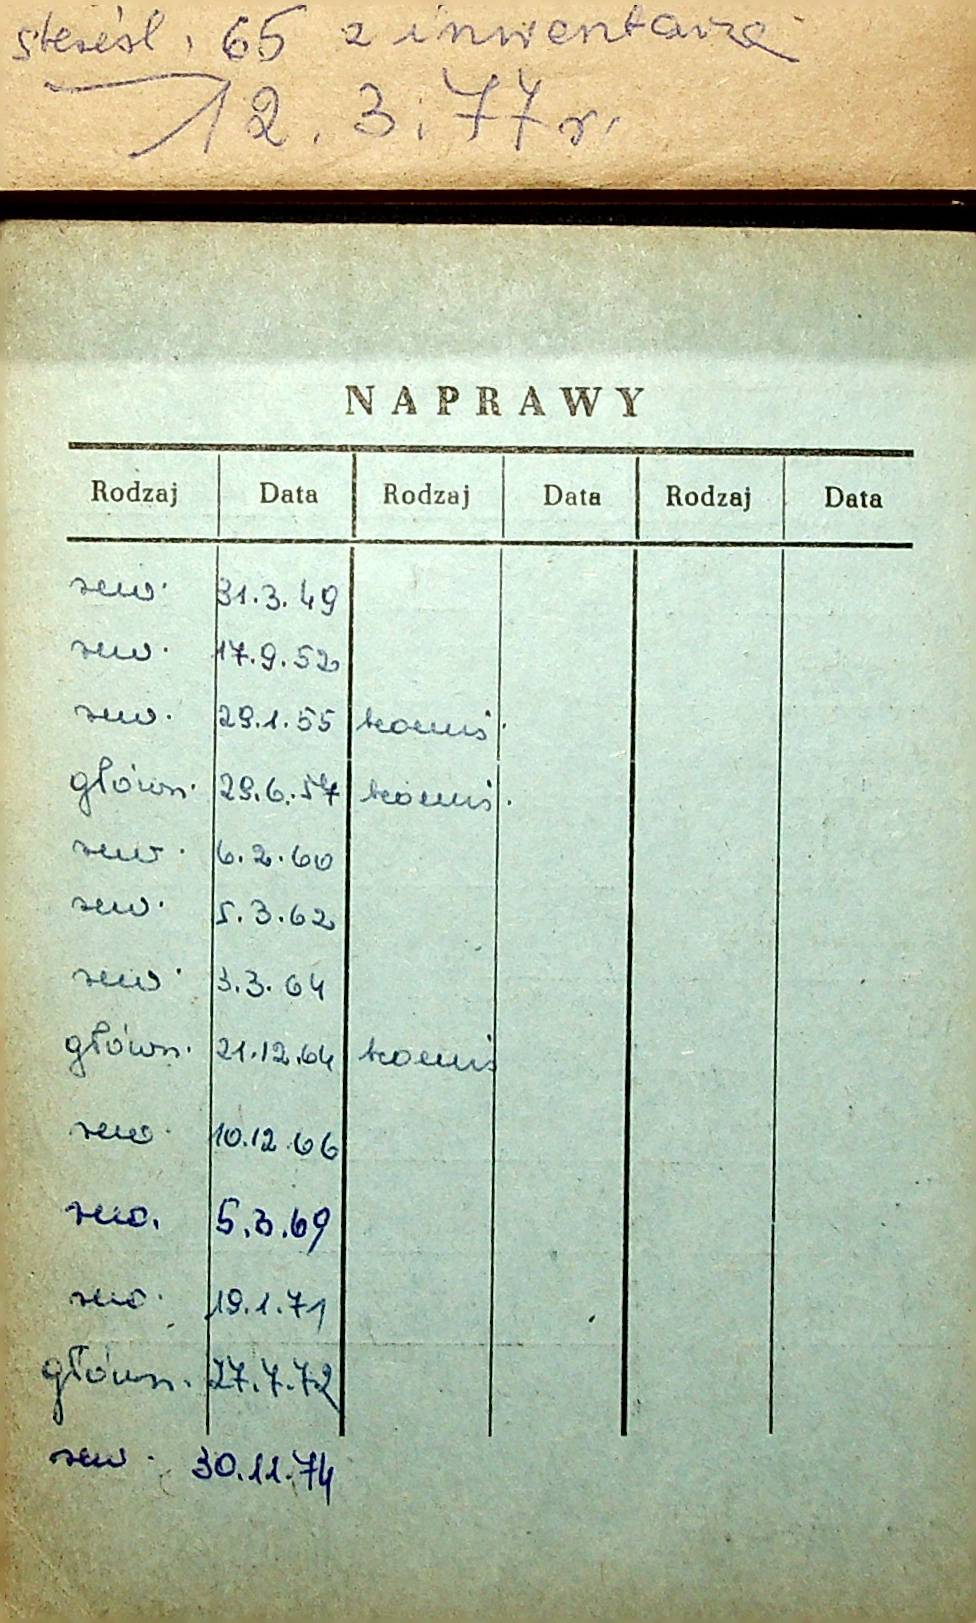 skreśl. 65 z inwentarza
12.3.77r.
NAPRAWY
Rodzaj Data Rodzaj Data Rodzaj Data
rew. 31.3.49
rew. 17.9.52
rew. 29.1.55
główn. 29.6.57
rew. 6.2.60
rew. 5.3.62
rew. 3.3.64
główn. 21.12.64
rew. 10.12.66
rew. 5.3.69
rew. 19.1.71
główn. 27.7.72
rew. 30.11.74